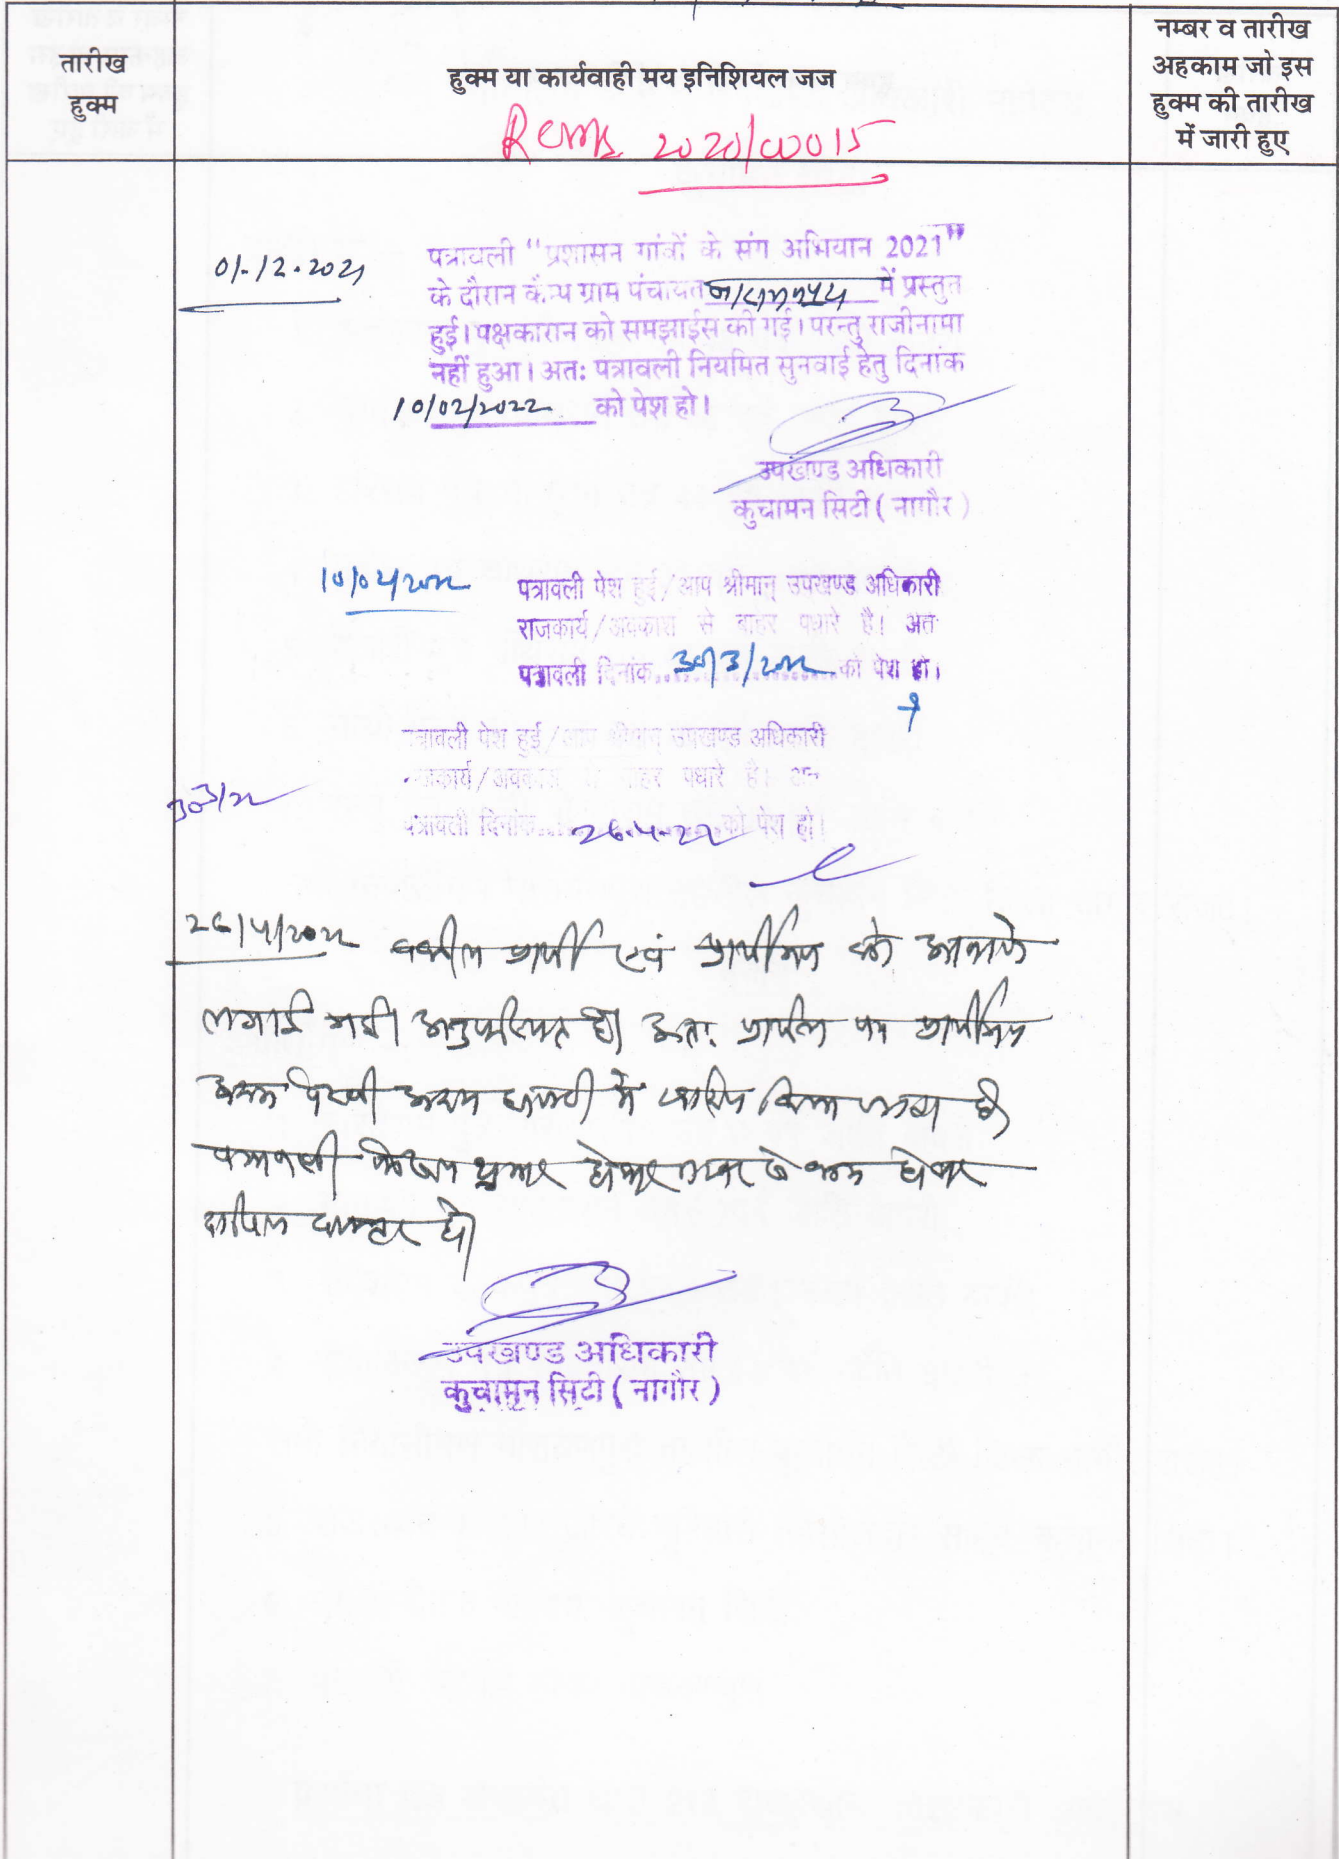 तारीख
हुक्म
हुक्म या कार्यवाही मय इनिशियल जज
नम्बर व तारीख
अहकाम जो इस
हुक्म की तारीख
में जारी हुए
2020/00015
01-12-2021
पत्रावली "प्रशासन गांवों के संग अभियान 2021"
के दौरान कैम्प ग्राम पंचायत में प्रस्तुत
हुई। पक्षकारान को समझाईस की गई। परन्तु राजीनामा
नहीं हुआ। अतः पत्रावली नियमित सुनवाई हेतु दिनांक
10/02/2022 को पेश हो।
उपखण्ड अधिकारी
कुचामन सिटी ( नागौर )
10/02/2022
पत्रावली पेश हुई/आप श्रीमान् उपखण्ड अधिकारी
राजकार्य/अवकाश से बाहर पधारे है। अत
पत्रावली दिनांक 30/3/2022 को पेश हो।
पत्रावली पेश हुई/आप श्रीमान् उपखण्ड अधिकारी
राजकार्य/अवकाश से बाहर पधारे है। अत
30/3/22
पत्रावली दिनांक 26-4-22 को पेश हो।
26/4/2022 वकील प्रार्थी एवं प्रार्थीगण को आवाजे
लगाई गई। अनुपस्थित है। अतः प्रार्थना पत्र प्रार्थीगण
अदम पैरवी अदम हाजरी में खारिज किया जाता है।
पत्रावली फैसल शुमार होकर नम्बर से कम होकर
दाखिल दफ्तर हो।
उपखण्ड अधिकारी
कुचामन सिटी ( नागौर )